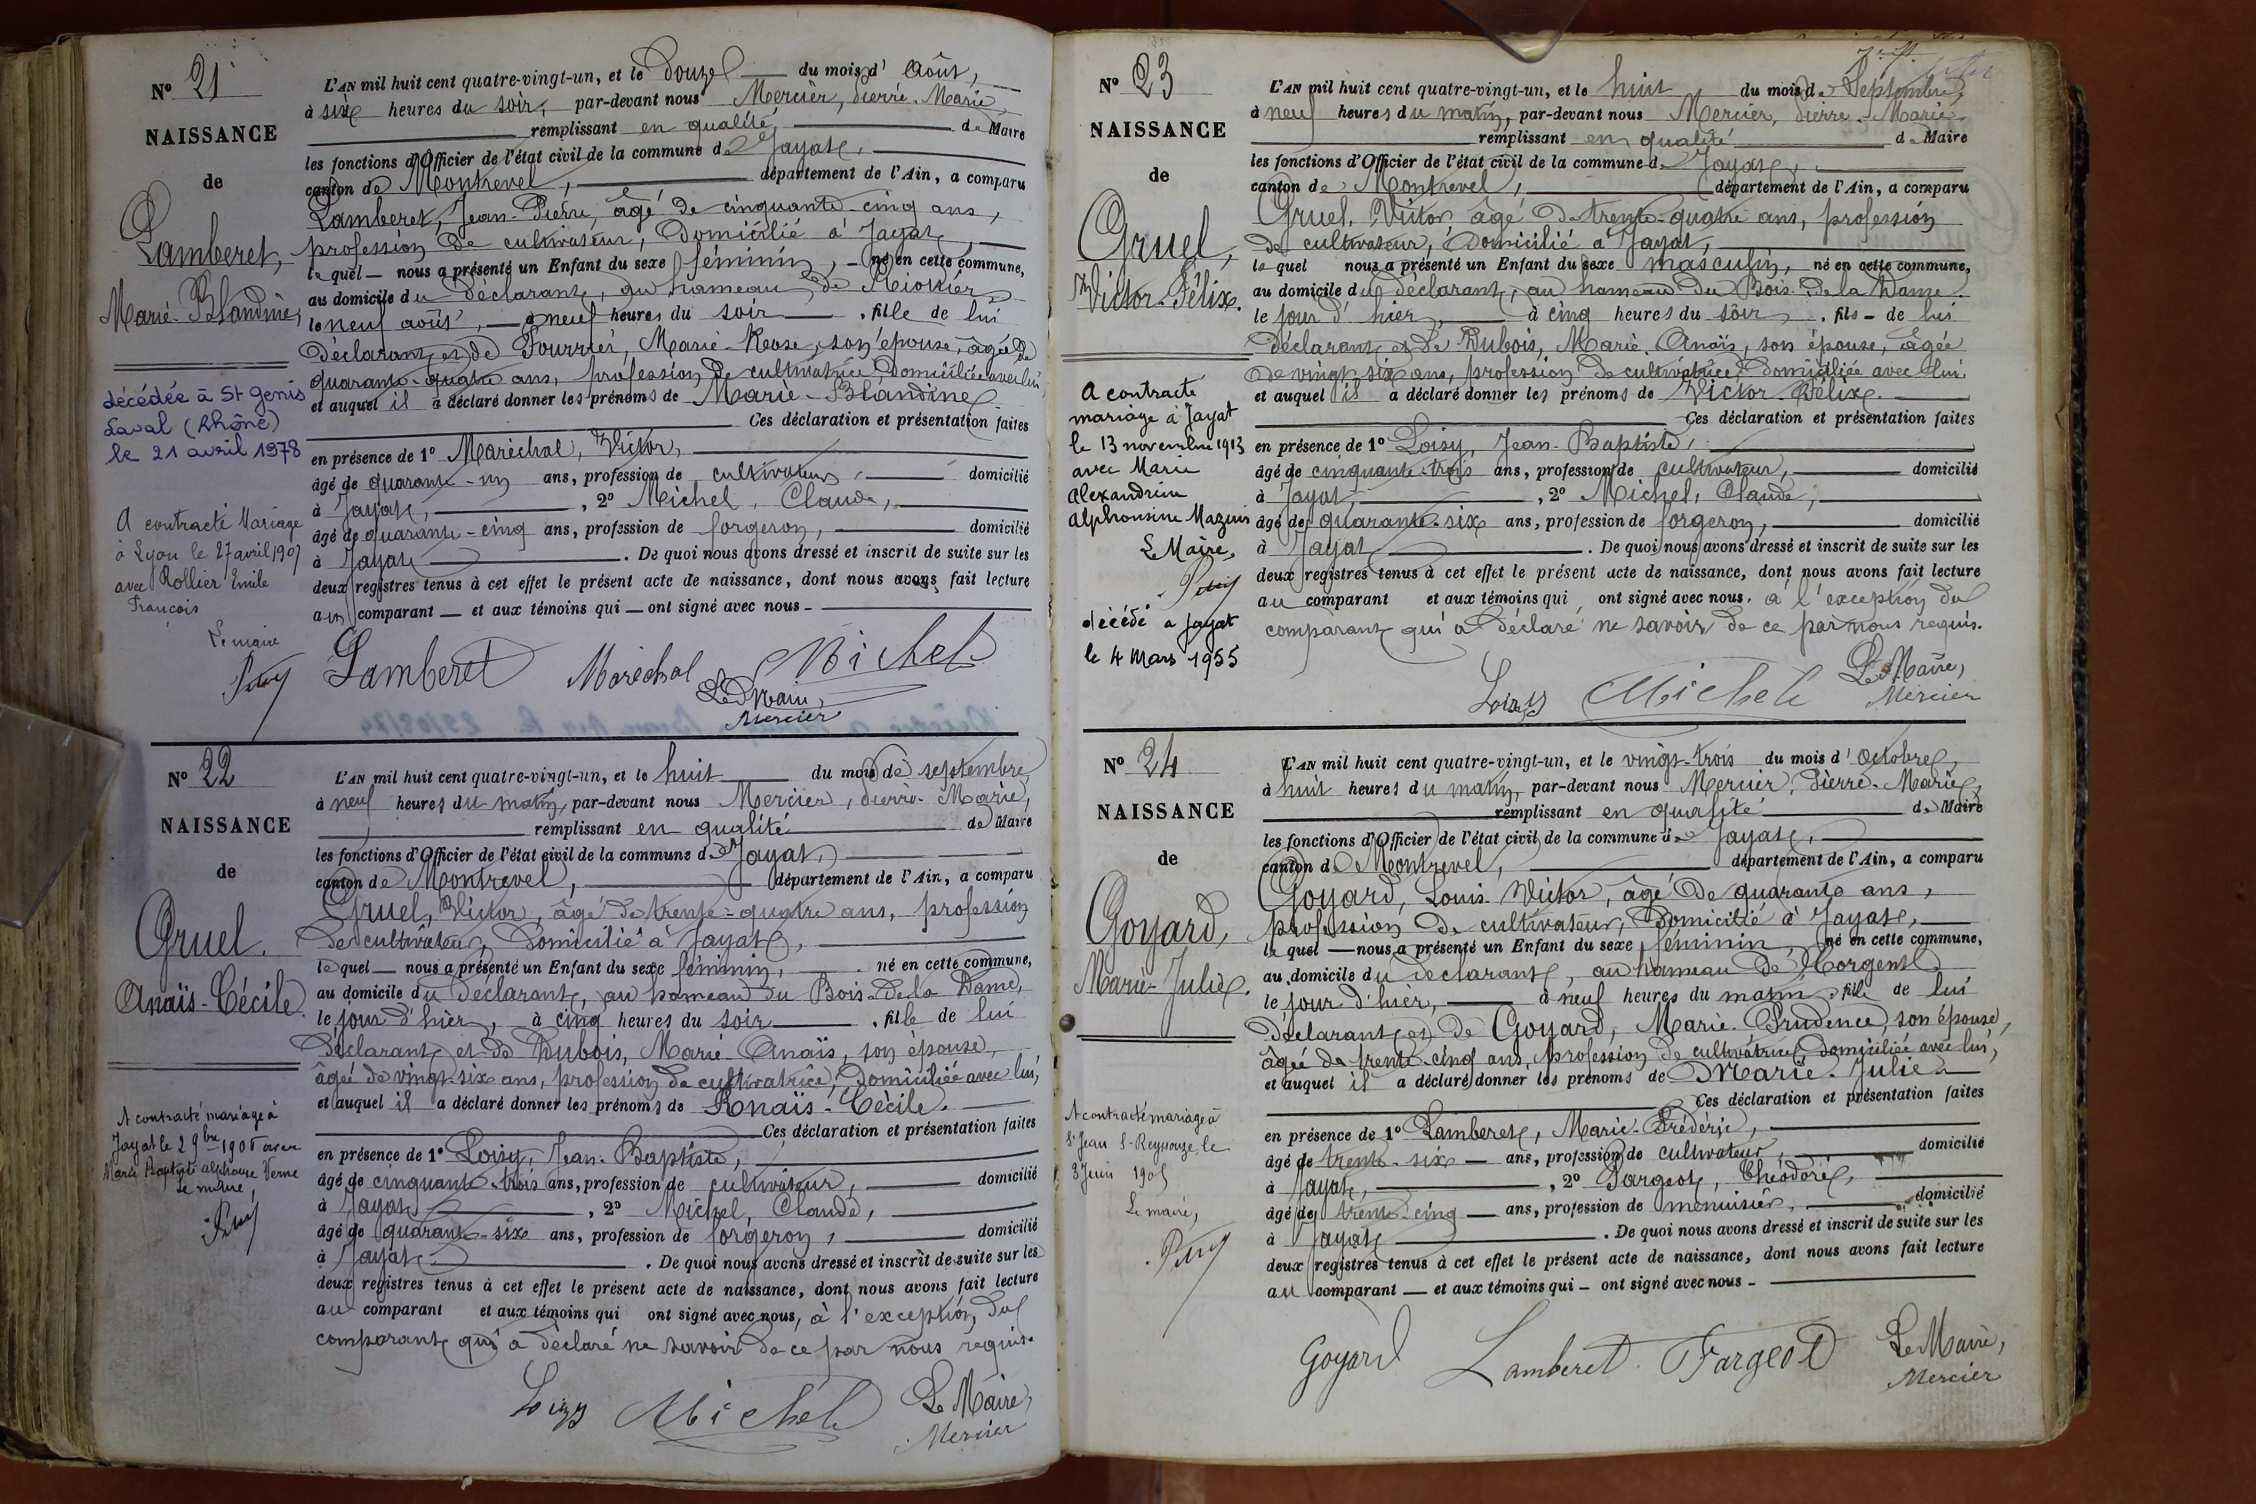 N° 21
NAISSANCE
de
Lamberet,
Marie-Blandine,
décédée à St Genis
Laval (Rhône)
le 21 avril 1978
A contracté Mariage
à Lyon le 27 avril 1907
avec Rollier Emile
François
Le maire
L'AN mil huit cent quatre-vingt-un, et le douze du mois d' Août,
à six heures du soir, par-devant nous Mercier, Pierre-Marie,
remplissant en qualité de Maire
les fonctions d'Officier de l'état civil de la commune de Jayat,
canton de Montrevel, département de l'Ain, a comparu
Lamberet, Jean-Pierre, âgé de cinquante-cinq ans,
profession de cultivateur, domicilié à Jayat,
le quel nous a présenté un Enfant du sexe féminin, né en cette commune,
au domicile du déclarant, au hameau de
le neuf août, à neuf heures du soir, fille de lui
déclarant et de Fourrier, Marie-Rose, son épouse, âgée de
quarante-quatre ans, profession de cultivatrice, domiciliée avec lui
et auquel il a déclaré donner les prénoms de Marie-Blandine
Ces déclaration et présentation faites
en présence de 1° Maréchal, Victor,
âgé de quarante-un ans, profession de cultivateur, domicilié
à Jayat, , 2° Michel, Claude,
âgé de quarante-cinq ans, profession de forgeron, domicilié
à Jayat . De quoi nous avons dressé et inscrit de suite sur les
deux registres tenus à cet effet le présent acte de naissance, dont nous avons fait lecture
au comparant et aux témoins qui ont signé avec nous
Lamberet Maréchal Michel
Le Maire,
Mercier
N° 22
NAISSANCE
de
Gruel.
Anaïs-Cécile.
A contracté mariage à
Jayat le 2 9bre 1905 avec
Marie Baptiste Alphonse Verne
Le maire,
L'AN mil huit cent quatre-vingt-un, et le huit du mois de septembre,
à neuf heures du matin, par-devant nous Mercier, Pierre-Marie,
remplissant en qualité de Maire
les fonctions d'Officier de l'état civil de la commune de Jayat,
canton de Montrevel, département de l'Ain, a comparu
Gruel, Victor, âgé de trente-quatre ans, profession
de cultivateur, domicilié à Jayat,
le quel nous a présenté un Enfant du sexe féminin, né en cette commune,
au domicile du déclarant, au hameau du Bois-de-la Dame,
le jour d'hier, à cinq heures du soir, fille de lui
déclarant et de Dubois, Marie-Anaïs, son épouse,
âgée de vingt-six ans, profession de cultivatrice, domiciliée avec lui,
et auquel il a déclaré donner les prénoms de Anaïs-Cécile.
Ces déclaration et présentation faites
en présence de 1° Loisy, Jean-Baptiste,
âgé de cinquante-trois ans, profession de cultivateur, domicilié
à Jayat , 2° Michel, Claude,
âgé de quarante-six ans, profession de forgeron, domicilié
à Jayat . De quoi nous avons dressé et inscrit de suite sur les
deux registres tenus à cet effet le présent acte de naissance, dont nous avons fait lecture
au comparant et aux témoins qui ont signé avec nous, à l'exception du
comparant qui a déclaré ne savoir de ce par nous requis.
Loisy Michel Le Maire,
Mercier
N° 23
NAISSANCE
de
Gruel,
Victor-Félix.
A contracté
mariage à Jayat
le 13 novembre 1913
avec Marie
Alexandrine
Alphonsine Mazuir
Le Maire,
décédé à Jayat
le 4 Mars 1955
L'AN mil huit cent quatre-vingt-un, et le huit du mois de Septembre,
à neuf heures du matin, par-devant nous Mercier, Pierre-Marie,
remplissant en qualité de Maire
les fonctions d'Officier de l'état civil de la commune de Jayat,
canton de Montrevel, département de l'Ain, a comparu
Gruel, Victor, âgé de trente-quatre ans, profession
de cultivateur, domicilié à Jayat,
le quel nous a présenté un Enfant du sexe masculin, né en cette commune,
au domicile du déclarant, au hameau du Bois-de la Dame.
le jour d'hier, à cinq heures du soir, fils de lui
déclarant et de Dubois, Marie-Anaïs, son épouse, âgée
de vingt-six ans, profession de cultivatrice, domiciliée avec lui
et auquel il a déclaré donner les prénoms de Victor-Félix.
Ces déclaration et présentation faites
en présence de 1° Loisy, Jean-Baptiste,
âgé de cinquante-trois ans, profession de cultivateur, domicilié
à Jayat, , 2° Michel, Claude,
âgé de quarante-six ans, profession de forgeron, domicilié
à Jayat . De quoi nous avons dressé et inscrit de suite sur les
deux registres tenus à cet effet le présent acte de naissance, dont nous avons fait lecture
au comparant et aux témoins qui ont signé avec nous, à l'exception du
comparant qui a déclaré ne savoir de ce par nous requis.
Loisy Michel Le Maire,
Mercier
N° 24
NAISSANCE
de
Goyard,
Marie-Julie.
A contracté mariage à
St Jean S-Reyssouze le
3 Juin 1905
Le maire,
L'AN mil huit cent quatre-vingt-un, et le vingt-trois du mois d' Octobre,
à huit heures du matin, par-devant nous Mercier, Pierre-Marie,
remplissant en qualité de Maire
les fonctions d'Officier de l'état civil de la commune de Jayat,
canton de Montrevel, département de l'Ain, a comparu
Goyard, Louis-Victor, âgé de quarante ans,
profession de cultivateur, domicilié à Jayat,
le quel nous a présenté un Enfant du sexe féminin, né en cette commune,
au domicile du déclarant, au hameau de
le jour d'hier, à neuf heures du matin, fille de lui
déclarant et de Goyard, Marie-Prudence, son épouse,
âgée de trente-cinq ans, profession de cultivatrice, domiciliée avec lui,
et auquel il a déclaré donner les prénoms de Marie-Julie
Ces déclaration et présentation faites
en présence de 1° Lamberet, Marie-Frédéric,
âgé de trente-six ans, profession de cultivateur, domicilié
à Jayat, , 2° Fargeot, Théodore,
âgé de trente-cinq ans, profession de menuisier, domicilié
à Jayat . De quoi nous avons dressé et inscrit de suite sur les
deux registres tenus à cet effet le présent acte de naissance, dont nous avons fait lecture
au comparant et aux témoins qui ont signé avec nous
Goyard Lamberet Fargeot Le Maire,
Mercier